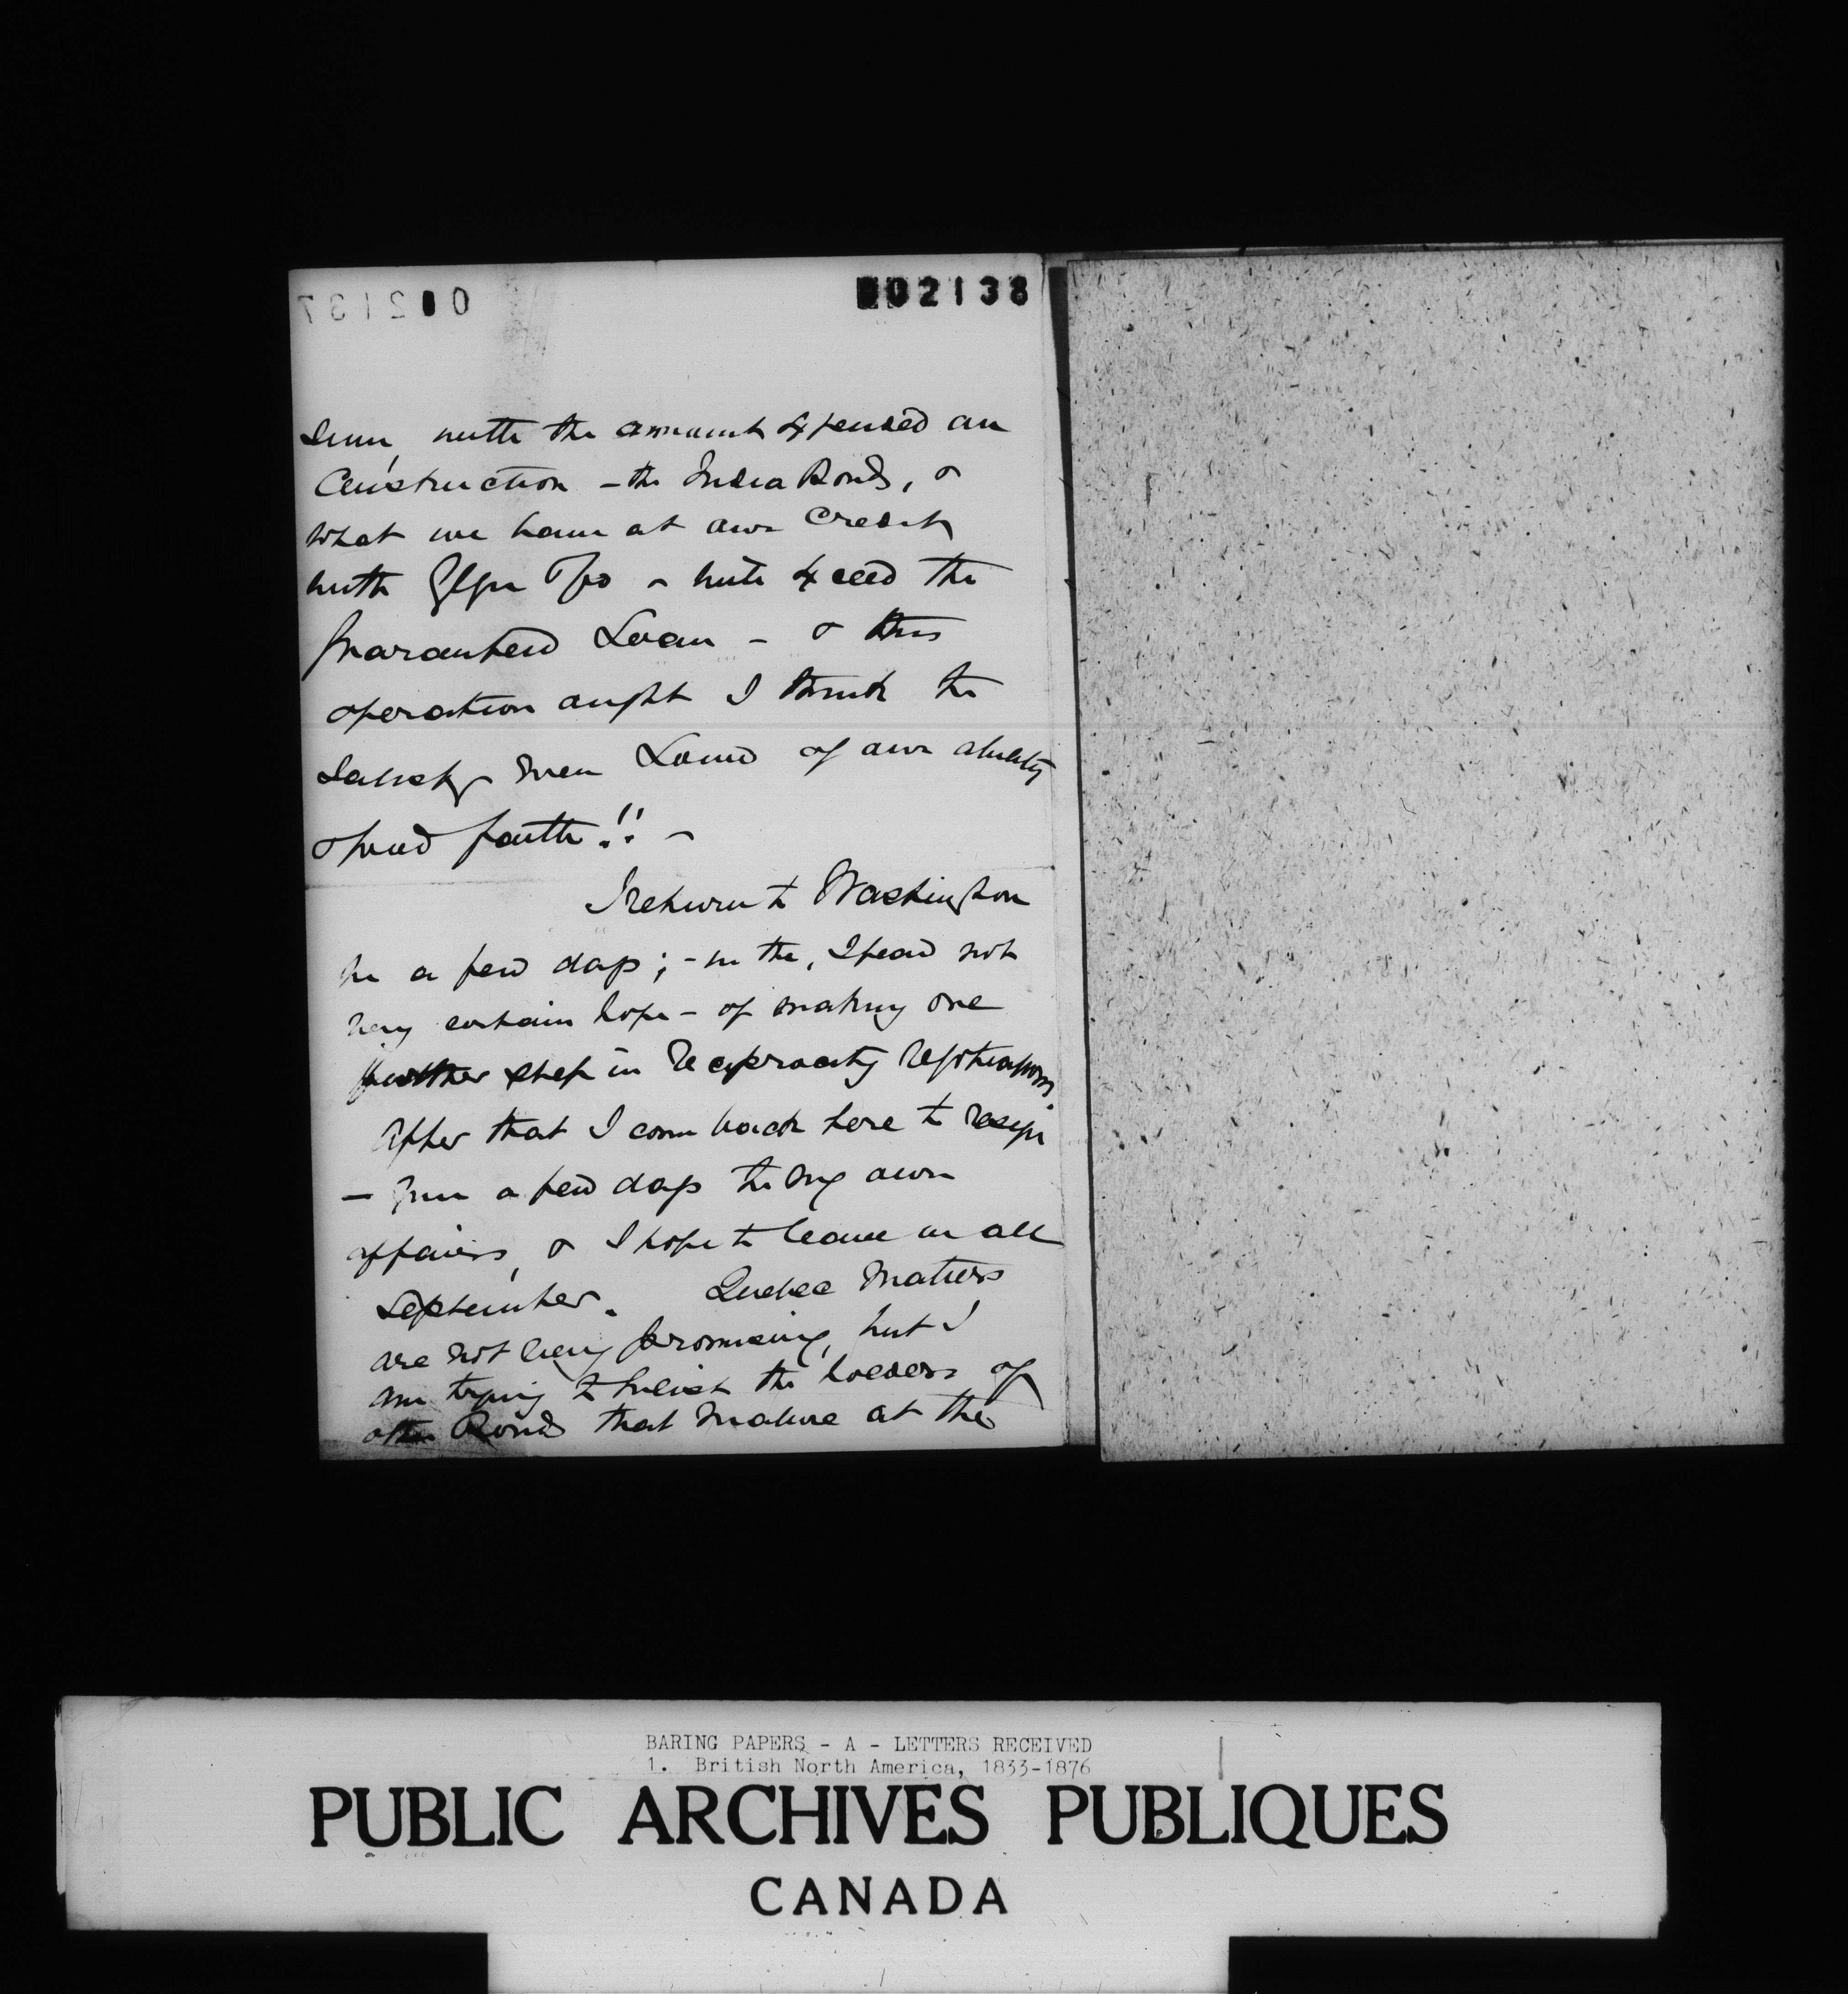 002137
002138
sum, with the amount expended on
Construction - the India Bonds, &
what we have at our Credit
with Glyn & Co - will exceed the
Guaranteed Loan - & this
operation ought I think to
satisfy men Loud of our ability
& good faith!! -
I return to Washington
in a few days; - in the, I fear not
very certain hope - of making one
further step in Reciprocity Negotiations
After that I come back here to resign
- give a few days to my own
affairs, & I hope to leave in all
September. Quebec Matters
are not very promising, but I
am trying to enlist the holders of
other Bonds that mature at the
BARING PAPERS - A - LETTERS RECEIVED
1. British North America, 1833-1876
PUBLIC ARCHIVES PUBLIQUES
CANADA